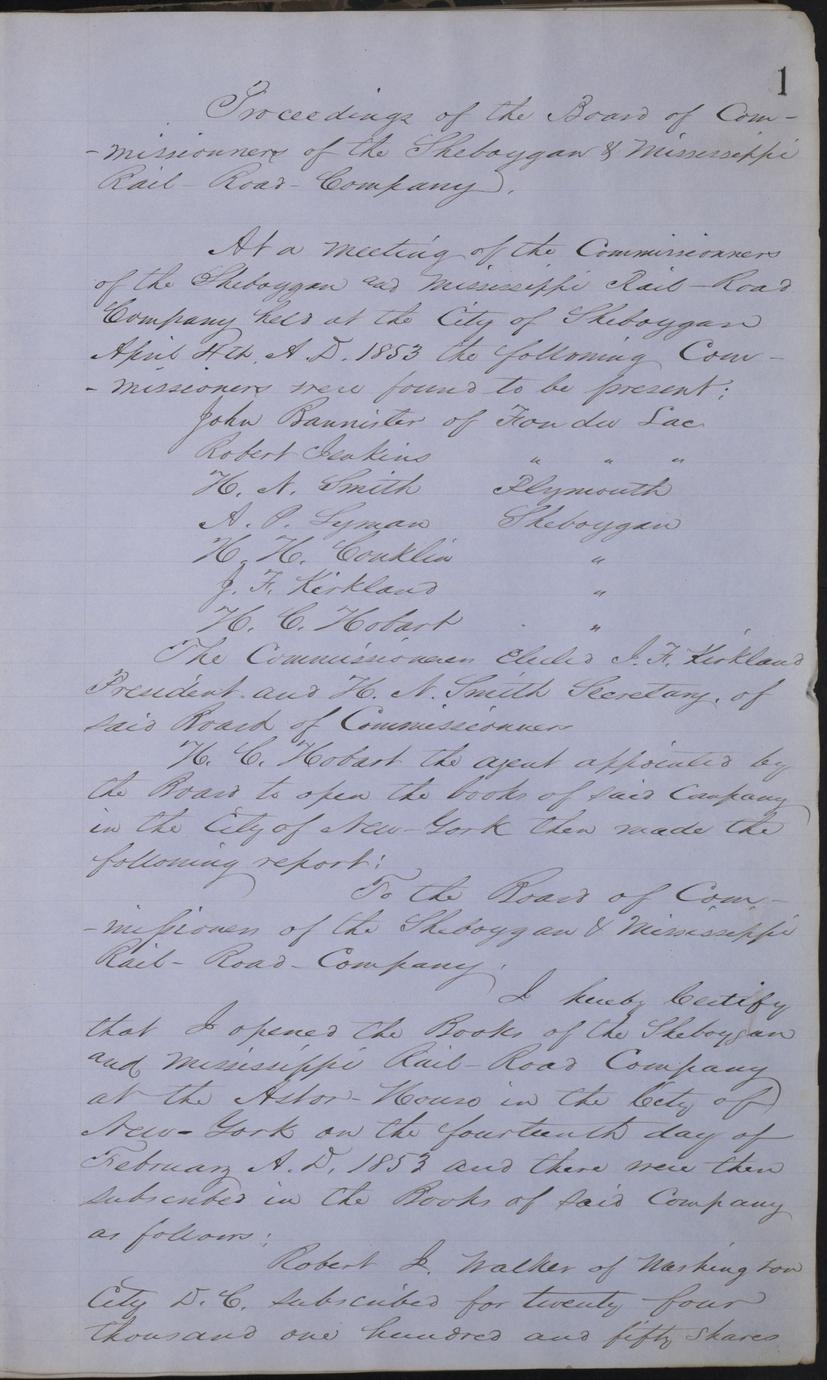 1
Proceedings of the Board of Com-
-missionners of the Sheboygan & Mississippi
Rail-Road-Company.
At a meeting of the Commissionners
of the Sheboygan and Mississippi Rail-Road
Company held at the City of Sheboygan
April 4th, A.D. 1853 the following Com-
-missioners were found to be present:
John Bannister of Fon du Lac
Robert Jenkins " " "
H. N. Smith Plymouth
A. P. Lyman Sheboygan
H. H. Conklin "
J. F. Kirkland "
H. C. Hobart "
The Commissioners elected J. F. Kirkland
President and H. N. Smith Secretary, of
said Board of Commissionners
H. C. Hobart the agent appointed by
the Board to open the books of said Company
in the City of New-York then made the
following report:
To the Board of Com-
-missioners of the Sheboygan & Mississippi
Rail-Road-Company.
I hereby Certify
that I opened the Books of the Sheboygan
and Mississippi Rail-Road Company
at the Astor-House in the City of
New-York on the fourteenth day of
February A.D. 1853 and there were then
subscribed in the Books of said Company
as follows:
Robert J. Walker of Washington
City D.C. subscribed for twenty four
thousand one hundred and fifty shares